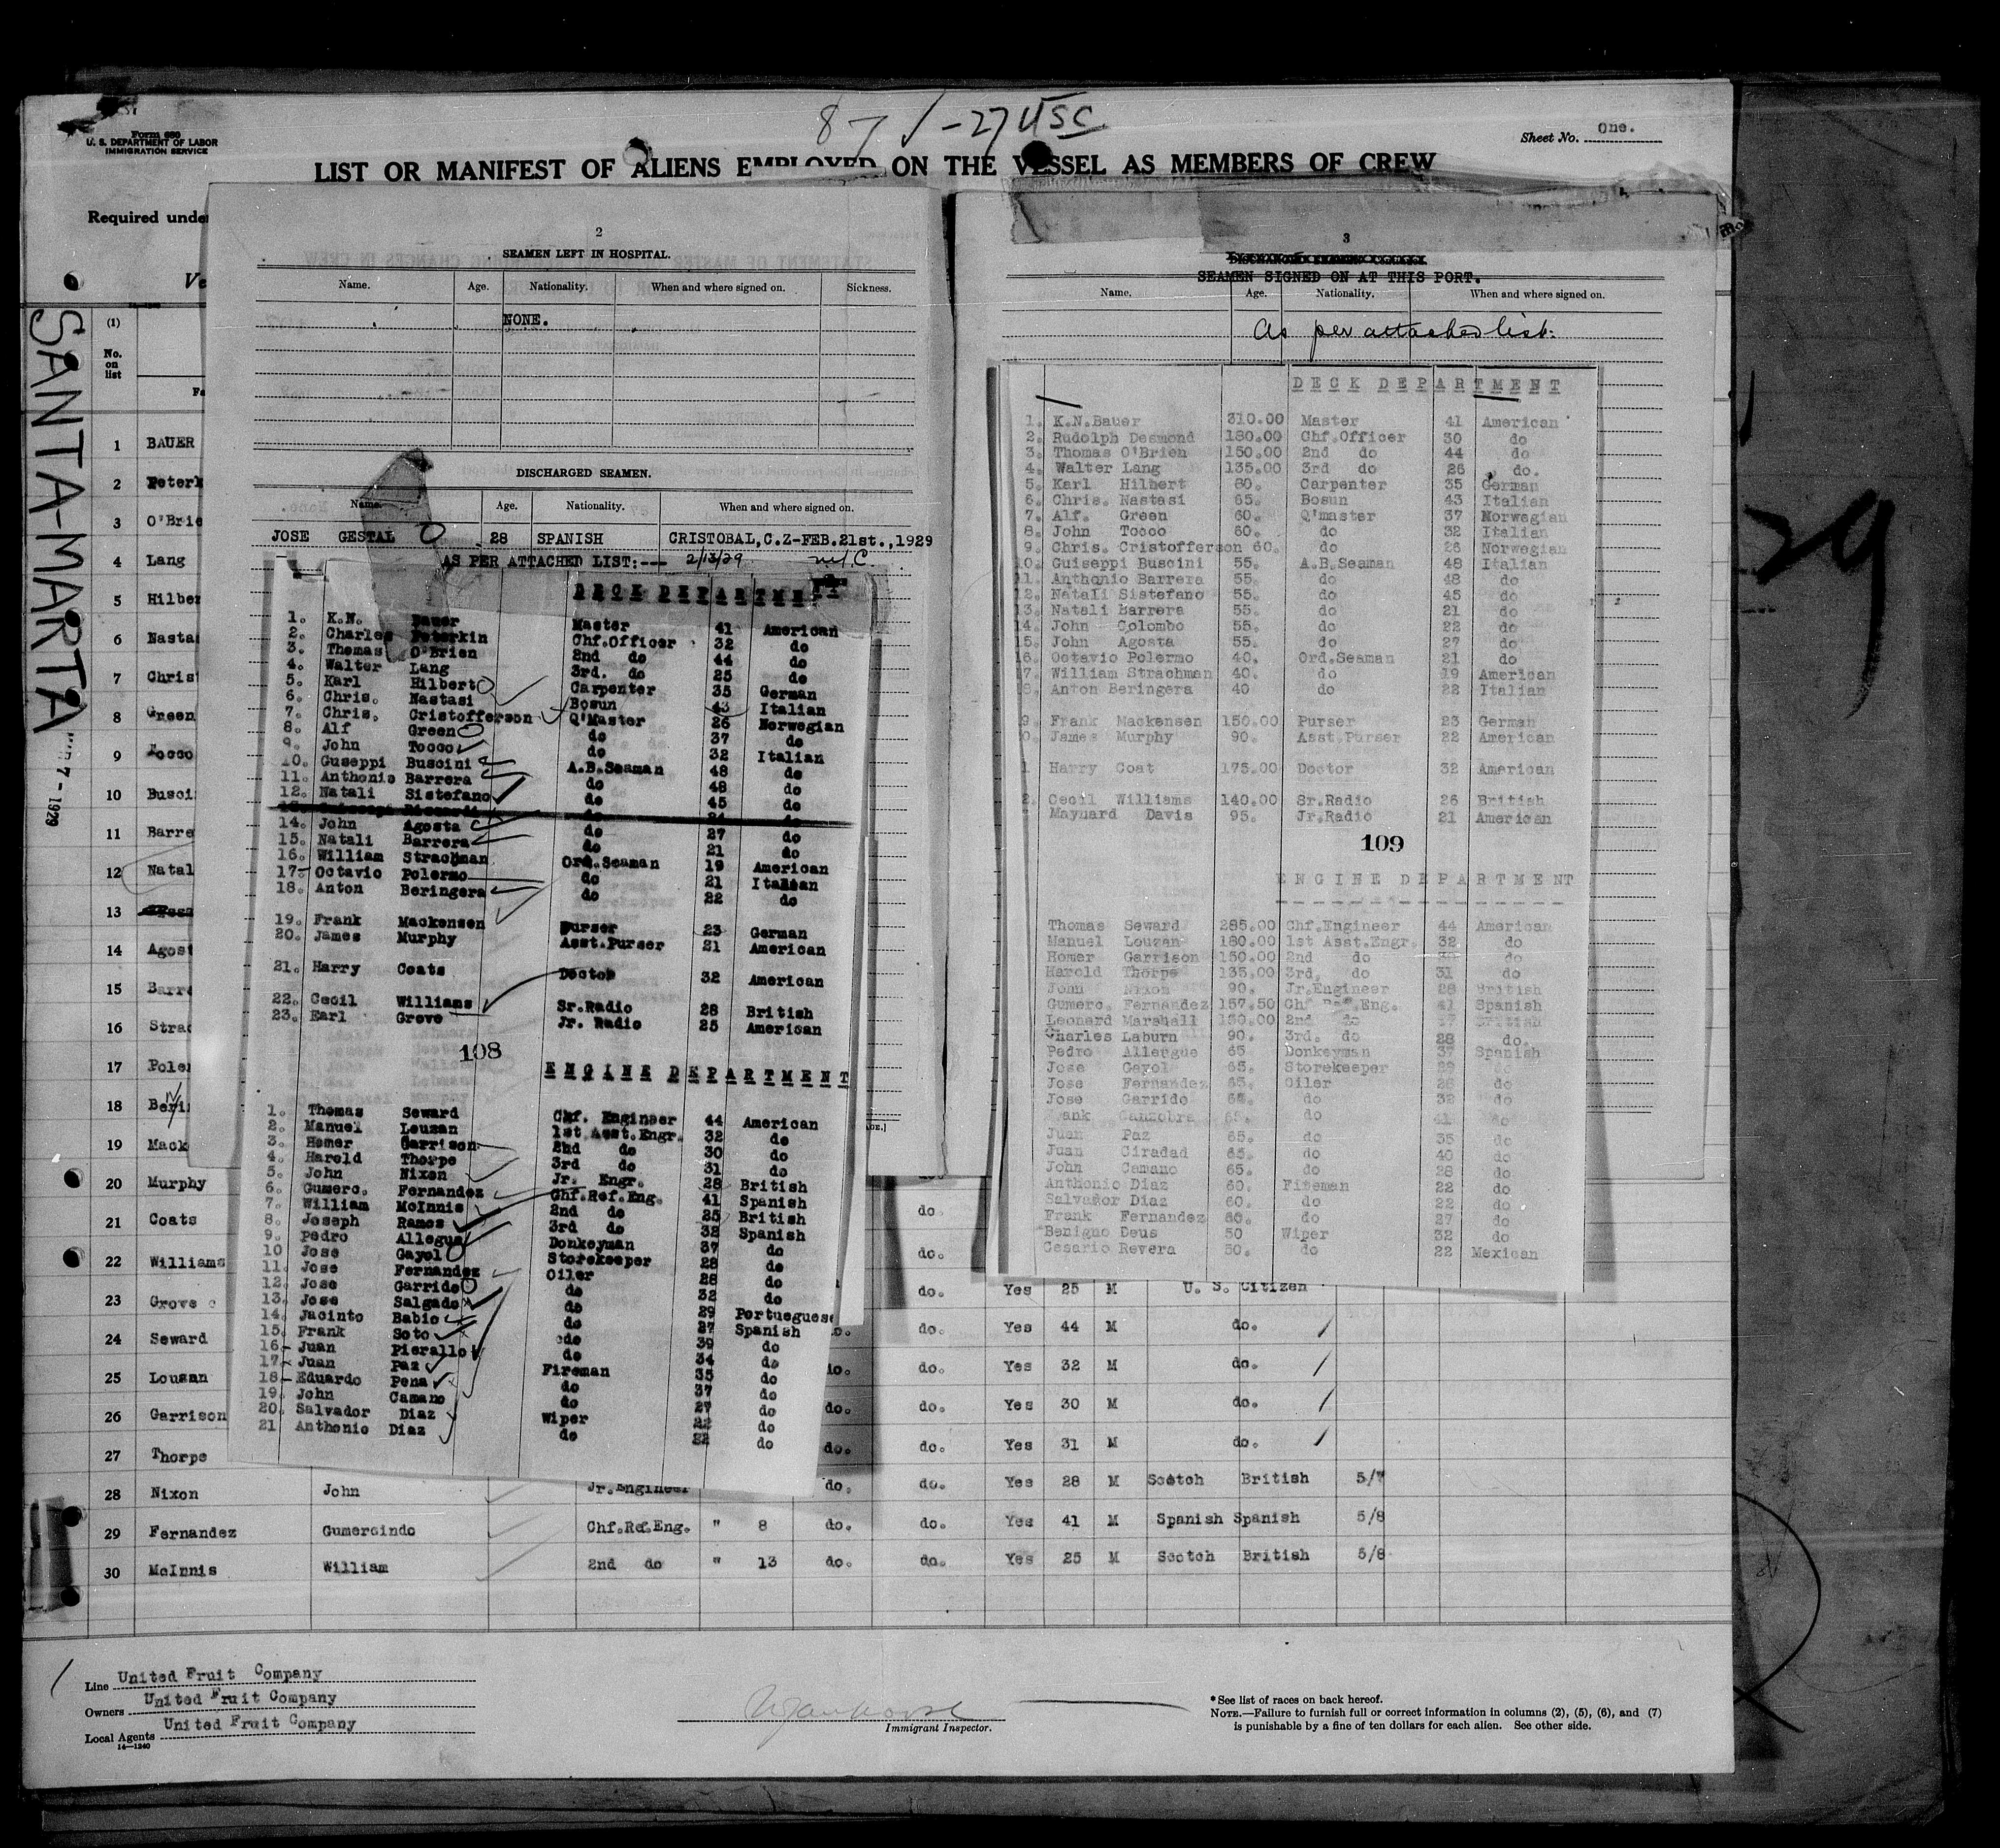 87 -27 USC
Form 680
U. S. DEPARTMENT OF LABOR
IMMIGRATION SERVICE
Sheet No. One.
LIST OR MANIFEST OF ALIENS EMPLOYED ON THE VESSEL AS MEMBERS OF CREW
Required unde
SANTA-MARTA
7 - 1929
(1)
No. on list
1 BAUER
2 Peterk
3 O'Brie
4 Lang
5 Hilber
6 Nasta
7 Christ
8 Green
9 Tocco
10 Busci
11 Barre
12 Natal
13
14 Agost
15 Barre
16 Strac
17 Poler
18 Beri
19 Mack
20 Murphy
21 Coats do.
22 Williams do.
23 Grove do. Yes 25 M U. S. Citizen
24 Seward do. do. Yes 44 M do.
25 Lousan do. do. Yes 32 M do.
26 Garrison do. do. Yes 30 M do.
27 Thorpe do. do. Yes 31 M do.
28 Nixon John Jr.Engineer do. do. Yes 28 M Scotch British 5/7
29 Fernandez Gumercindo Chf.Ref.Eng. " 8 do. do. Yes 41 M Spanish Spanish 5/8
30 McInnis William 2nd do " 13 do. do. Yes 25 M Scotch British 5/8
2
SEAMEN LEFT IN HOSPITAL.
Name. Age. Nationality. When and where signed on. Sickness.
NONE.
DISCHARGED SEAMEN.
Name. Age. Nationality. When and where signed on.
JOSE GESTAL 28 SPANISH CRISTOBAL,C.Z-FEB.21st.,1929
AS PER ATTACHED LIST:--- 2/13/29
DECK DEPARTMENT
1. K.N. Bauer Master 41 American
2. Charles Peterkin Chf.Officer 32 do
3. Thomas O'Brien 2nd do 44 do
4. Walter Lang 3rd. do 25 do
5. Karl Hilbert Carpenter 35 German
6. Chris. Nastasi Bosun 43 Italian
7. Chris. Cristofferson Q'Master 26 Norwegian
8. Alf Green do 37 do
9. John Tocco do 32 Italian
10. Guseppi Buscini A.B.Seaman 48 do
11. Anthonio Barrera do 48 do
12. Natali Sistefano do 45 do
14. John Agosta do 27 do
15. Natali Barrera do 21 do
16. William Strachman Ord.Seaman 19 American
17- Octavio Polermo do 21 Italian
18. Anton Beringera do 22 do
19. Frank Mackensen Purser 23 German
20. James Murphy Asst.Purser 21 American
21. Harry Coats Doctor 32 American
22. Cecil Williams Sr.Radio 28 British
23. Earl Grove Jr. Radio 25 American
108
ENGINE DEPARTMENT
1. Thomas Seward Chf. Engineer 44 American
2. Manuel Louzan 1st Asst.Engr. 32 do
3. Homer Garrison 2nd do 30 do
4. Harold Thorpe 3rd do 31 do
5. John Nixon Jr. Engr. 28 British
6. Gumerc. Fernandez Chf.Ref.Eng. 41 Spanish
7. William McInnis 2nd do 25 British
8. Joseph Ramos 3rd do 32 Spanish
9. Pedro Allegue Donkeyman 37 do
10 Jose Gayol Storekeeper 28 do
11. Jose Fernandez Oiler 28 do
12. Jose Garrido do 32 do
13. Jose Salgado do 29 Portueguese
14. Jacinto Babio do 27 Spanish
15. Frank Soto do 39 do
16- Juan Pierallo do 34 do
17- Juan Paz Fireman 35 do
18- Eduardo Pena do 37 do
19. John Camano do 27 do
20. Salvador Diaz Wiper 22 do
21 Anthonio Diaz do 22 do
3
SEAMEN SIGNED ON AT THIS PORT.
Name. Age. Nationality. When and where signed on.
As per attached list:
DECK DEPARTMENT
1. K.N.Bauer 310.00 Master 41 American
2. Rudolph Desmond 180.00 Chf.Officer 30 do
3. Thomas O'Brien 150.00 2nd do 44 do
4. Walter Lang 135.00 3rd do 26 do.
5. Karl Hilbert 80. Carpenter 35 German
6. Chris. Nastasi 65. Bosun 43 Italian
7. Alf. Green 60. Q'master 37 Norwegian
8. John Tocco 60. do 32 Italian
9. Chris. Cristofferson 60. do 26 Norwegian
10. Guiseppi Buscini 55. A.B.Seaman 48 Italian
11. Anthonio Barrera 55. do 48 do
12. Natali Sistefano 55. do 45 do
13. Natali Barrera 55. do 21 do
14. John Colombo 55. do 22 do
15. John Agosta 55. do 27 do
16. Octavio Polermo 40. Ord.Seaman 21 do
17. William Strachman 40. do 19 American
18. Anton Beringera 40 do 22 Italian
9. Frank Mackensen 150.00 Purser 23 German
0. James Murphy 90. Asst.Purser 22 American
1 Harry Coat 175.00 Doctor 32 American
2. Cecil Williams 140.00 Sr.Radio 26 British
Maynard Davis 95. Jr.Radio 21 American
109
ENGINE DEPARTMENT
Thomas Seward 285.00 Chf.Engineer 44 American
Manuel Louzan 180.00 1st Asst.Engr. 32 do
Homer Garrison 150.00 2nd do 30 do
Harold Thorpe 135.00 3rd. do 31 do
John Nixon 90. Jr.Engineer 28 British
Gumerc. Fernandez 157.50 Chf Ref.Eng. 41 Spanish
Leonard Marshall 130.00 2nd do British
Charles Laburn 90. 3rd. do 28 do.
Pedro Allergue 65 Donkeyman 37 Spanish
Jose Gayol 65. Storekeeper 29 do
Jose Fernandez 65. Oiler 28 do
Jose Garrido 65. do 32 do
Frank Canzobra 65. do 41 do
Juan Paz 65. do 35 do
Juan Ciradad 65. do 40 do
John Camano 65. do 28 do
Anthonio Diaz 60. Fireman 22 do
Salvador Diaz 60. do 22 do
Frank Fernandez 60. do 27 do
Benigno Deus 50 Wiper 32 do
Cesario Revera 50. do 22 Mexican
29
Line United Fruit Company
Owners United Fruit Company
Local Agents United Fruit Company
14-1240
Immigrant Inspector.
* See list of races on back hereof.
NOTE.—Failure to furnish full or correct information in columns (2), (5), (6), and (7)
is punishable by a fine of ten dollars for each alien. See other side.